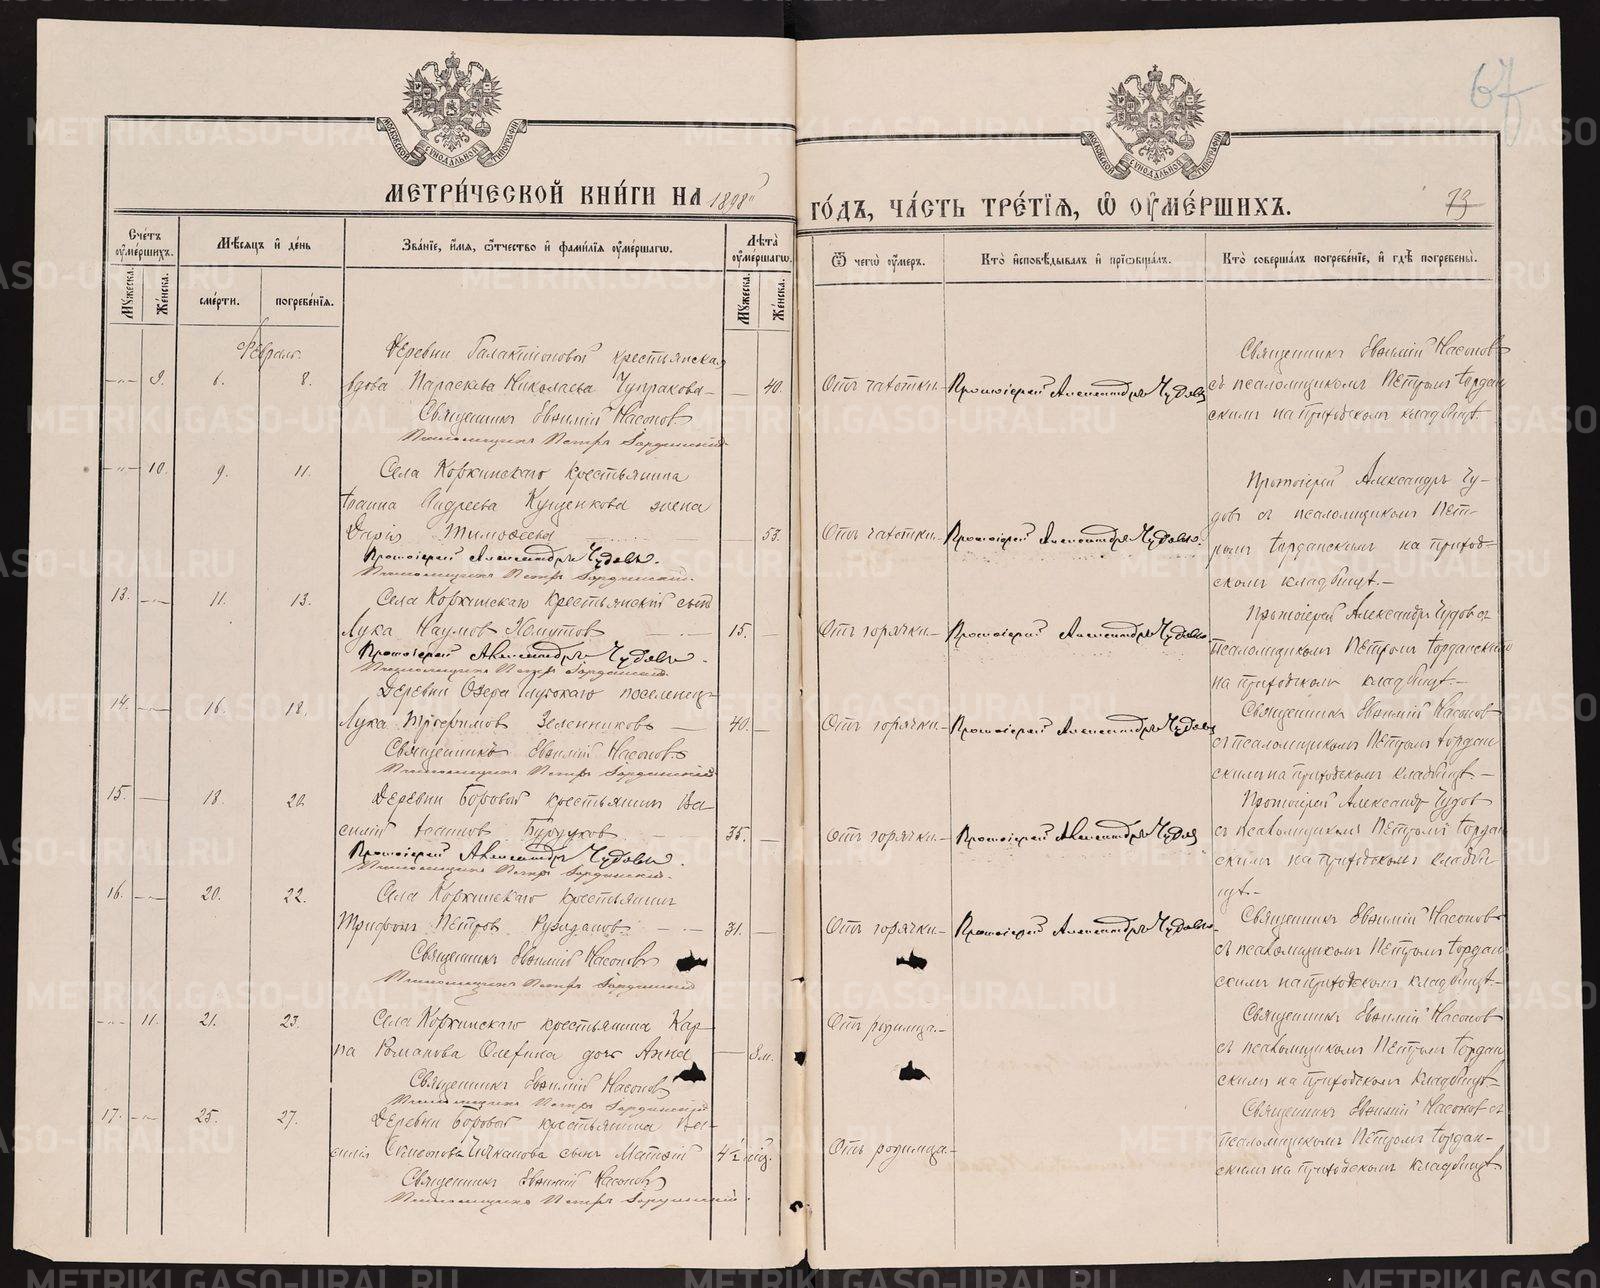 67
МОСКОВСКОЙ СѴНОДАЛЬНОЙ ТИПОГРАФІИ
МОСКОВСКОЙ СѴНОДАЛЬНОЙ ТИПОГРАФІИ
МЕТРИ́ЧЕСКОЙ КНИ́ГИ НА 1898
ГО́ДЪ, ЧА́СТЬ ТРЕ́ТІЯ, Ѿ ОУМЕ́РШИХЪ.
73
Сче́тъ оуме́ршихъ.
Мѣ́сяцъ и де́нь
Зва́нїе, и́мя, ѻ҆́тчество и фами́лїя оуме́ршагѡ.
Лѣ́та оуме́ршагѡ.
Ѿ чегѡ̀ оу́меръ.
Кто̀ и҆сповѣ́дывалъ и҆ прїѡбща́лъ.
Кто̀ соверша́лъ погребе́нїе, и҆ гдѣ̀ погребены̀.
Му́жеска.
Же́нска.
сме́рти.
погребе́нїя.
Му́жеска.
Же́нска.
Февраль.
Деревни Галактіоновой крестьянская
9. 6. 8. вдова Параскева Николаева Чупракова 40.
Священникъ Евѳимій Насонов
Псаломщикъ Петръ Іорданскій
Отъ чахотки. Протоіерей Александръ Чудовъ
Священникъ Евѳимій Насоновъ
съ псаломщикомъ Петромъ Іордан
скимъ на приходскомъ кладбищѣ.
10. 9. 11. Села Коркинскаго крестьянина
Іоанна Андреева Кущенкова жена
Дарія Тимоѳеева 53.
Протоіерей Александръ Чудовъ.
Псаломщикъ Петръ Іорданскій.
Отъ чахотки. Протоіерей Александръ Чудовъ.
Протоіерей Александръ Чу-
довъ съ псаломщикомъ Пет-
ромъ Іорданскимъ на приход-
скомъ кладбищѣ.
13. 11. 13. Села Коркинскаго крестьянскій сынъ
Лука Наумовъ Хомутовъ 15.
Протоіерей Александръ Чудовъ.
Псаломщикъ Петръ Іорданскій.
Отъ горячки. Протоіерей Александръ Чудовъ
Протоіерей Александръ Чудов съ
псаломщикомъ Петромъ Іорданскимъ
на приходскомъ кладбищѣ.
14. 16. 18. Деревни Озера поселенецъ
Лука Трофимовъ Зеленниковъ 40.
Священникъ Евѳимій Насоновъ
Псаломщикъ Петръ Іорданскій
Отъ горячки. Протоіерей Александръ Чудовъ
Священникъ Евѳимій Насонов
съ псаломщикомъ Петромъ Іордан
скимъ на приходскомъ кладбищѣ
15. 18. 20. Деревни Боровой крестьянинъ Ва-
силій 35.
Протоіерей Александръ Чудовъ.
Псаломщикъ Петръ Іорданскій.
Отъ горячки. Протоіерей Александръ Чудовъ
Протоіерей Александр Чудов
съ псаломщикомъ Петромъ Іордан
скимъ на приходскомъ кладби
щѣ.
16. 20. 22. Села Коркинскаго крестьянинъ
Трифонъ Петровъ 31.
Священникъ Евѳимій Насоновъ
Псаломщикъ Петръ Іорданскій
Отъ горячки. Протоіерей Александръ Чудовъ
Священникъ Евѳимій Насоновъ
съ псаломщикомъ Петромъ Іордан
скимъ на приходскомъ кладбищѣ.
11. 21. 23. Села Коркинскаго крестьянина Кар-
па Романова дочь Анна 8 м.
Священникъ Евѳимій Насоновъ
Псаломщикъ Петръ Іорданскій
Отъ родимца.
Священникъ Евѳимій Насонов
съ псаломщикомъ Петромъ Іордан
скимъ на приходскомъ кладбищѣ
17. 25. 27. Деревни Боровой крестьянина Ва-
силія сынъ Матѳій 4 ½
Священникъ Евѳимій Насоновъ
Псаломщикъ Петръ Іорданскій.
Отъ родимца.
Священникъ Евѳимій Насонов съ
псаломщикомъ Петромъ Іордан-
скимъ на приходскомъ кладбищѣ
METRIKI.GASO-URAL.RU